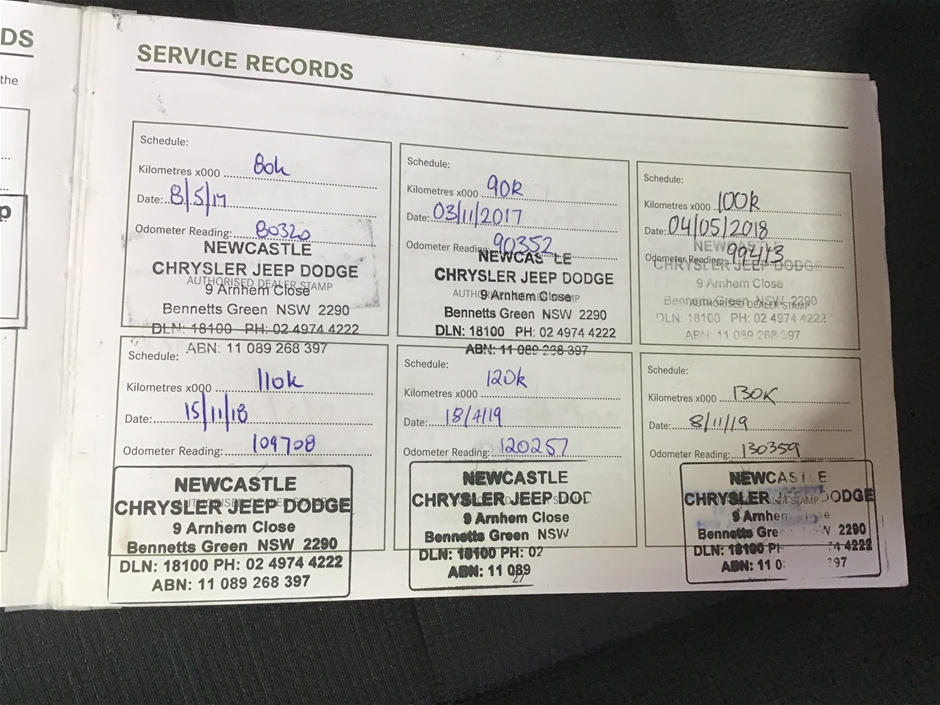 DS
the
p
SERVICE RECORDS
Schedule:
Kilometres x000 80k
Date: 8/5/17
Odometer Reading: 80320
NEWCASTLE
CHRYSLER JEEP DODGE
AUTHORISED DEALER STAMP
9 Arnhem Close
Bennetts Green NSW 2290
DLN: 18100 PH: 02 4974 4222
ABN: 11 089 268 397
Schedule:
Kilometres x000 90k
Date: 03/11/2017
Odometer Reading: 90352
NEWCASTLE
CHRYSLER JEEP DODGE
AUTHORISED DEALER STAMP
9 Arnhem Close
Bennetts Green NSW 2290
DLN: 18100 PH: 02 4974 4222
ABN: 11 089 268 397
Schedule:
Kilometres x000 100k
Date: 04/05/2018
Odometer Reading: 99413
NEWCASTLE
CHRYSLER JEEP DODGE
9 Arnhem Close
Bennetts Green NSW 2290
AUTHORISED DEALER STAMP
DLN: 18100 PH: 02 4974 4222
ABN: 11 089 268 397
Schedule:
Kilometres x000 110k
Date: 15/11/18
Odometer Reading: 109708
NEWCASTLE
CHRYSLER JEEP DODGE
AUTHORISED DEALER STAMP
9 Arnhem Close
Bennetts Green NSW 2290
DLN: 18100 PH: 02 4974 4222
ABN: 11 089 268 397
Schedule:
Kilometres x000 120k
Date: 18/4/19
Odometer Reading: 120257
NEWCASTLE
CHRYSLER JEEP DOD
9 Arnhem Close
Bennetts Green NSW
DLN: 18100 PH: 02
ABN: 11 089
Schedule:
Kilometres x000 130K
Date: 8/11/19
Odometer Reading: 130359
NEWCASTLE
CHRYSLER DODGE
STAMP
9 Arnhem
Bennetts Gre W 2290
DLN: 18100 P 74 4222
ABN: 11 0 397